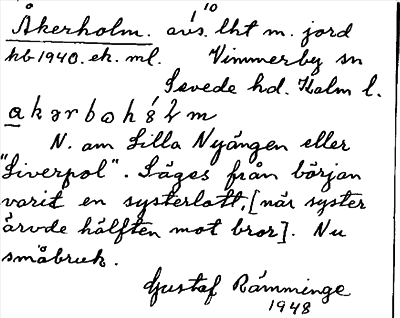 Åkerholm. avs. lht m. jord
hb 1940. ek. ml. Vimmerby sn
Sevede hd. Kalm l.
N. om Lilla Nyängen eller
"Liverpol". Säges från början
varit en systerlott, [när syster
ärvde hälften mot bror]. Nu
småbruk.
Gustaf Rämminge
1948